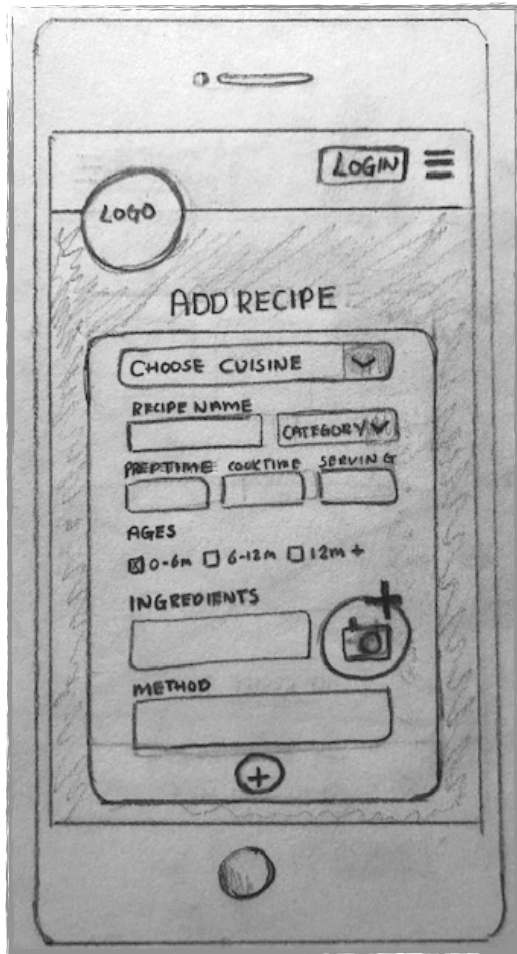 LOGIN
LOGO
ADD RECIPE
CHOOSE CUISINE
RECIPE NAME
CATEGORY
PREPTIME COOKTIME SERVING
AGES
0-6m 6-12m 12m +
INGREDIENTS
METHOD